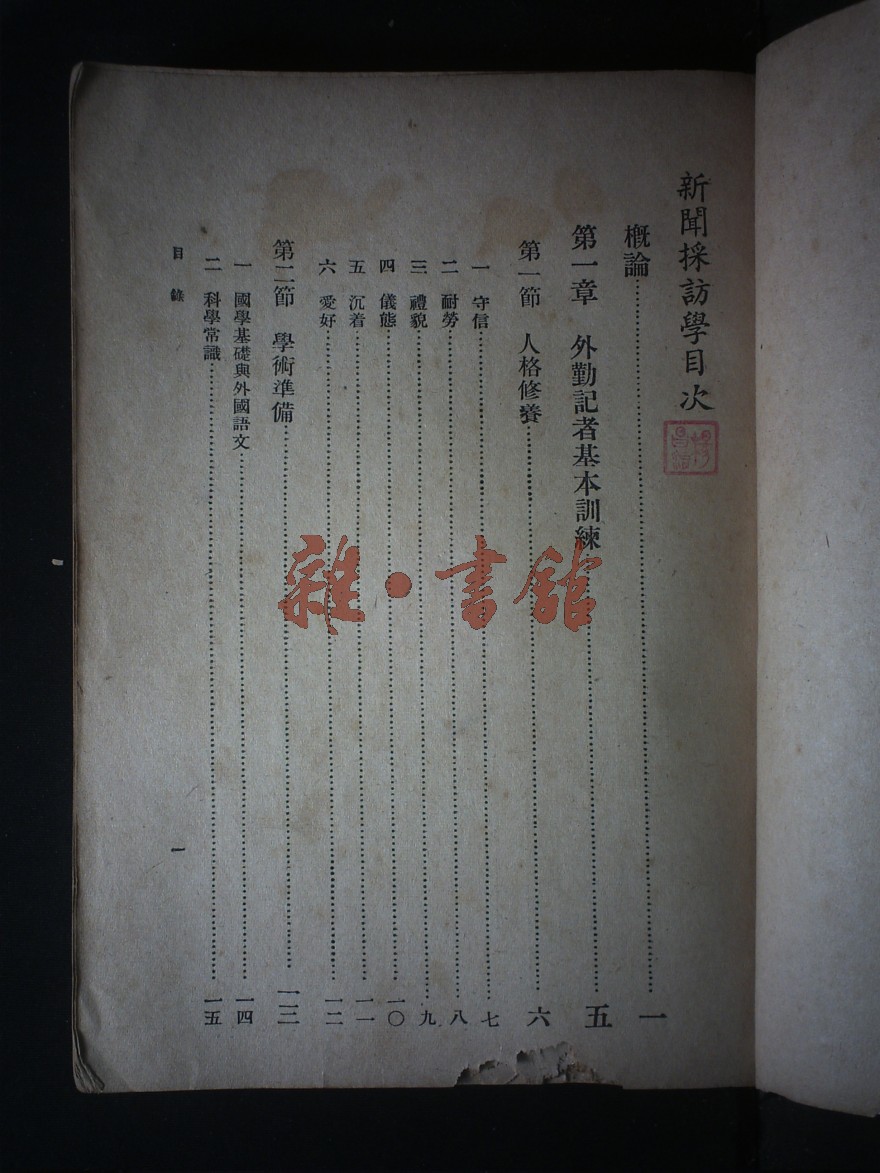 新聞採訪學目次
概論……一
第一章　外勤記者基本訓練……五
第一節　人格修養……六
一　守信……七
二　耐勞……八
三　禮貌……九
四　儀態……一〇
五　沉着……一一
六　愛好……一二
第二節　學術準備……一三
一　國學基礎與外國語文……一四
二　科學常識……一五
目錄
一
雜·書館